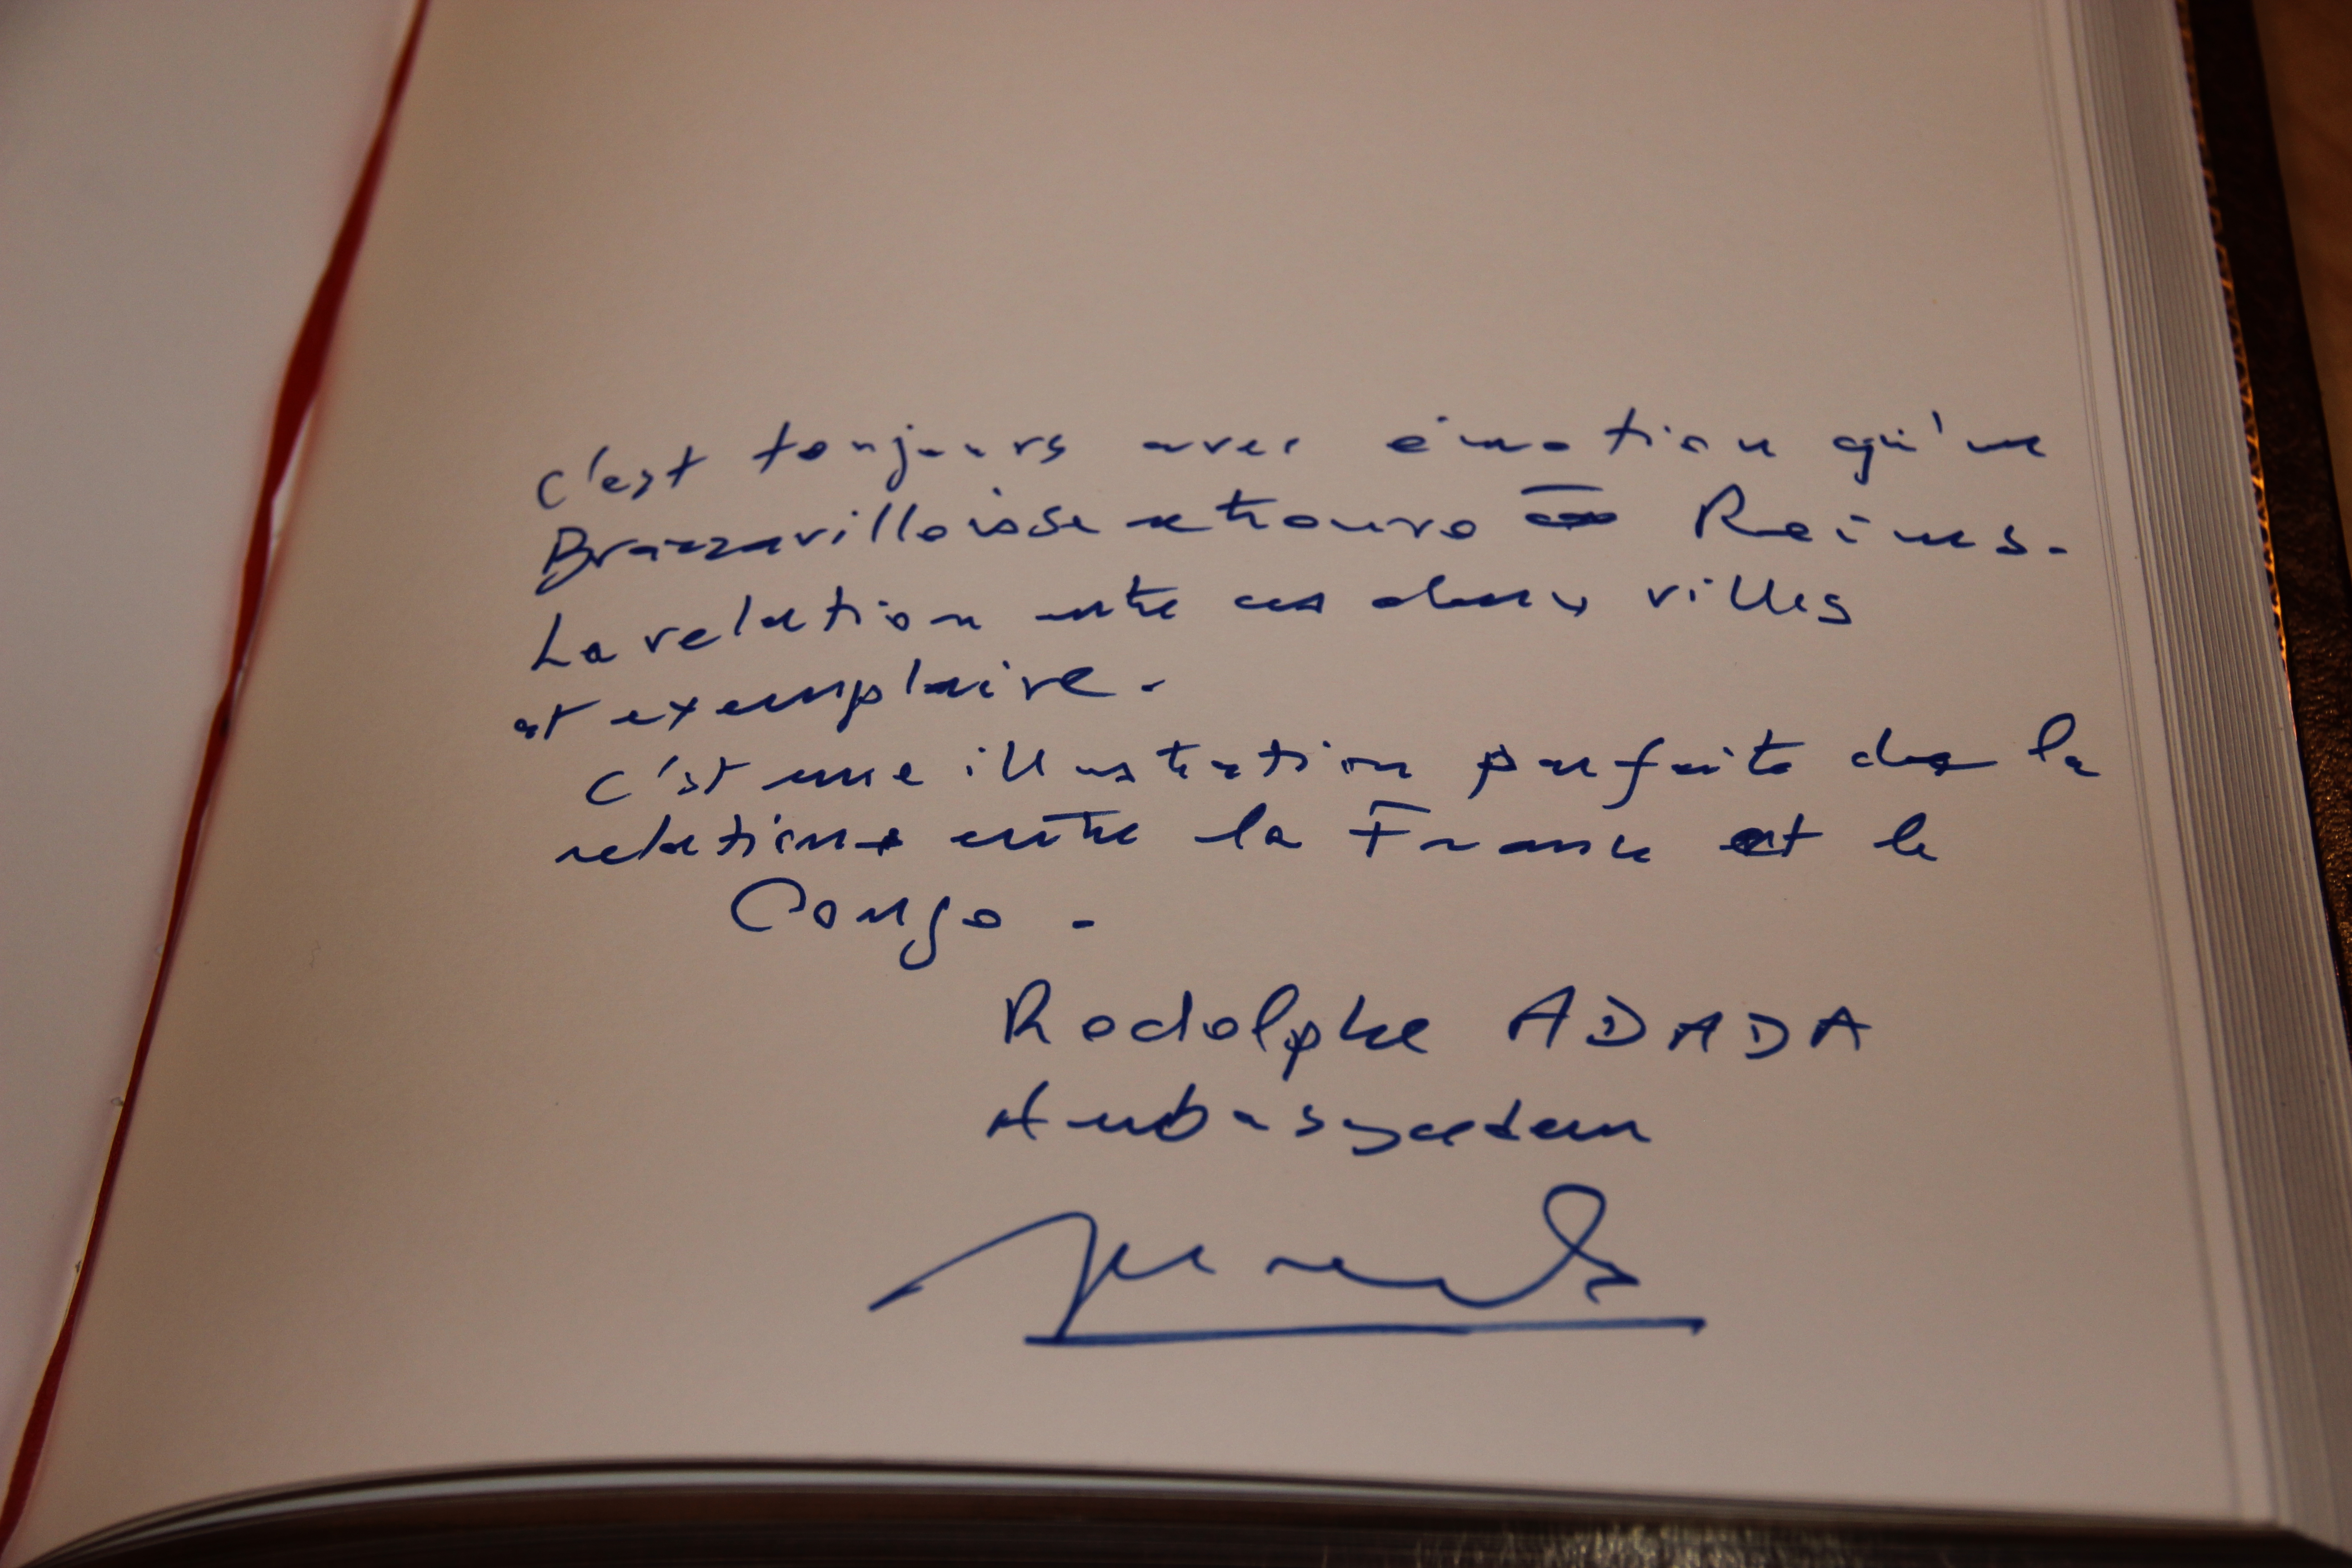 C'est toujours avec émotion qu'un
Brazzavillois se retrouve à Reims.
La relation entre ces deux villes
est exemplaire.
C'est une illustration parfaite de la
relation entre la France et le
Congo.
Rodolphe ADADA
Ambassadeur